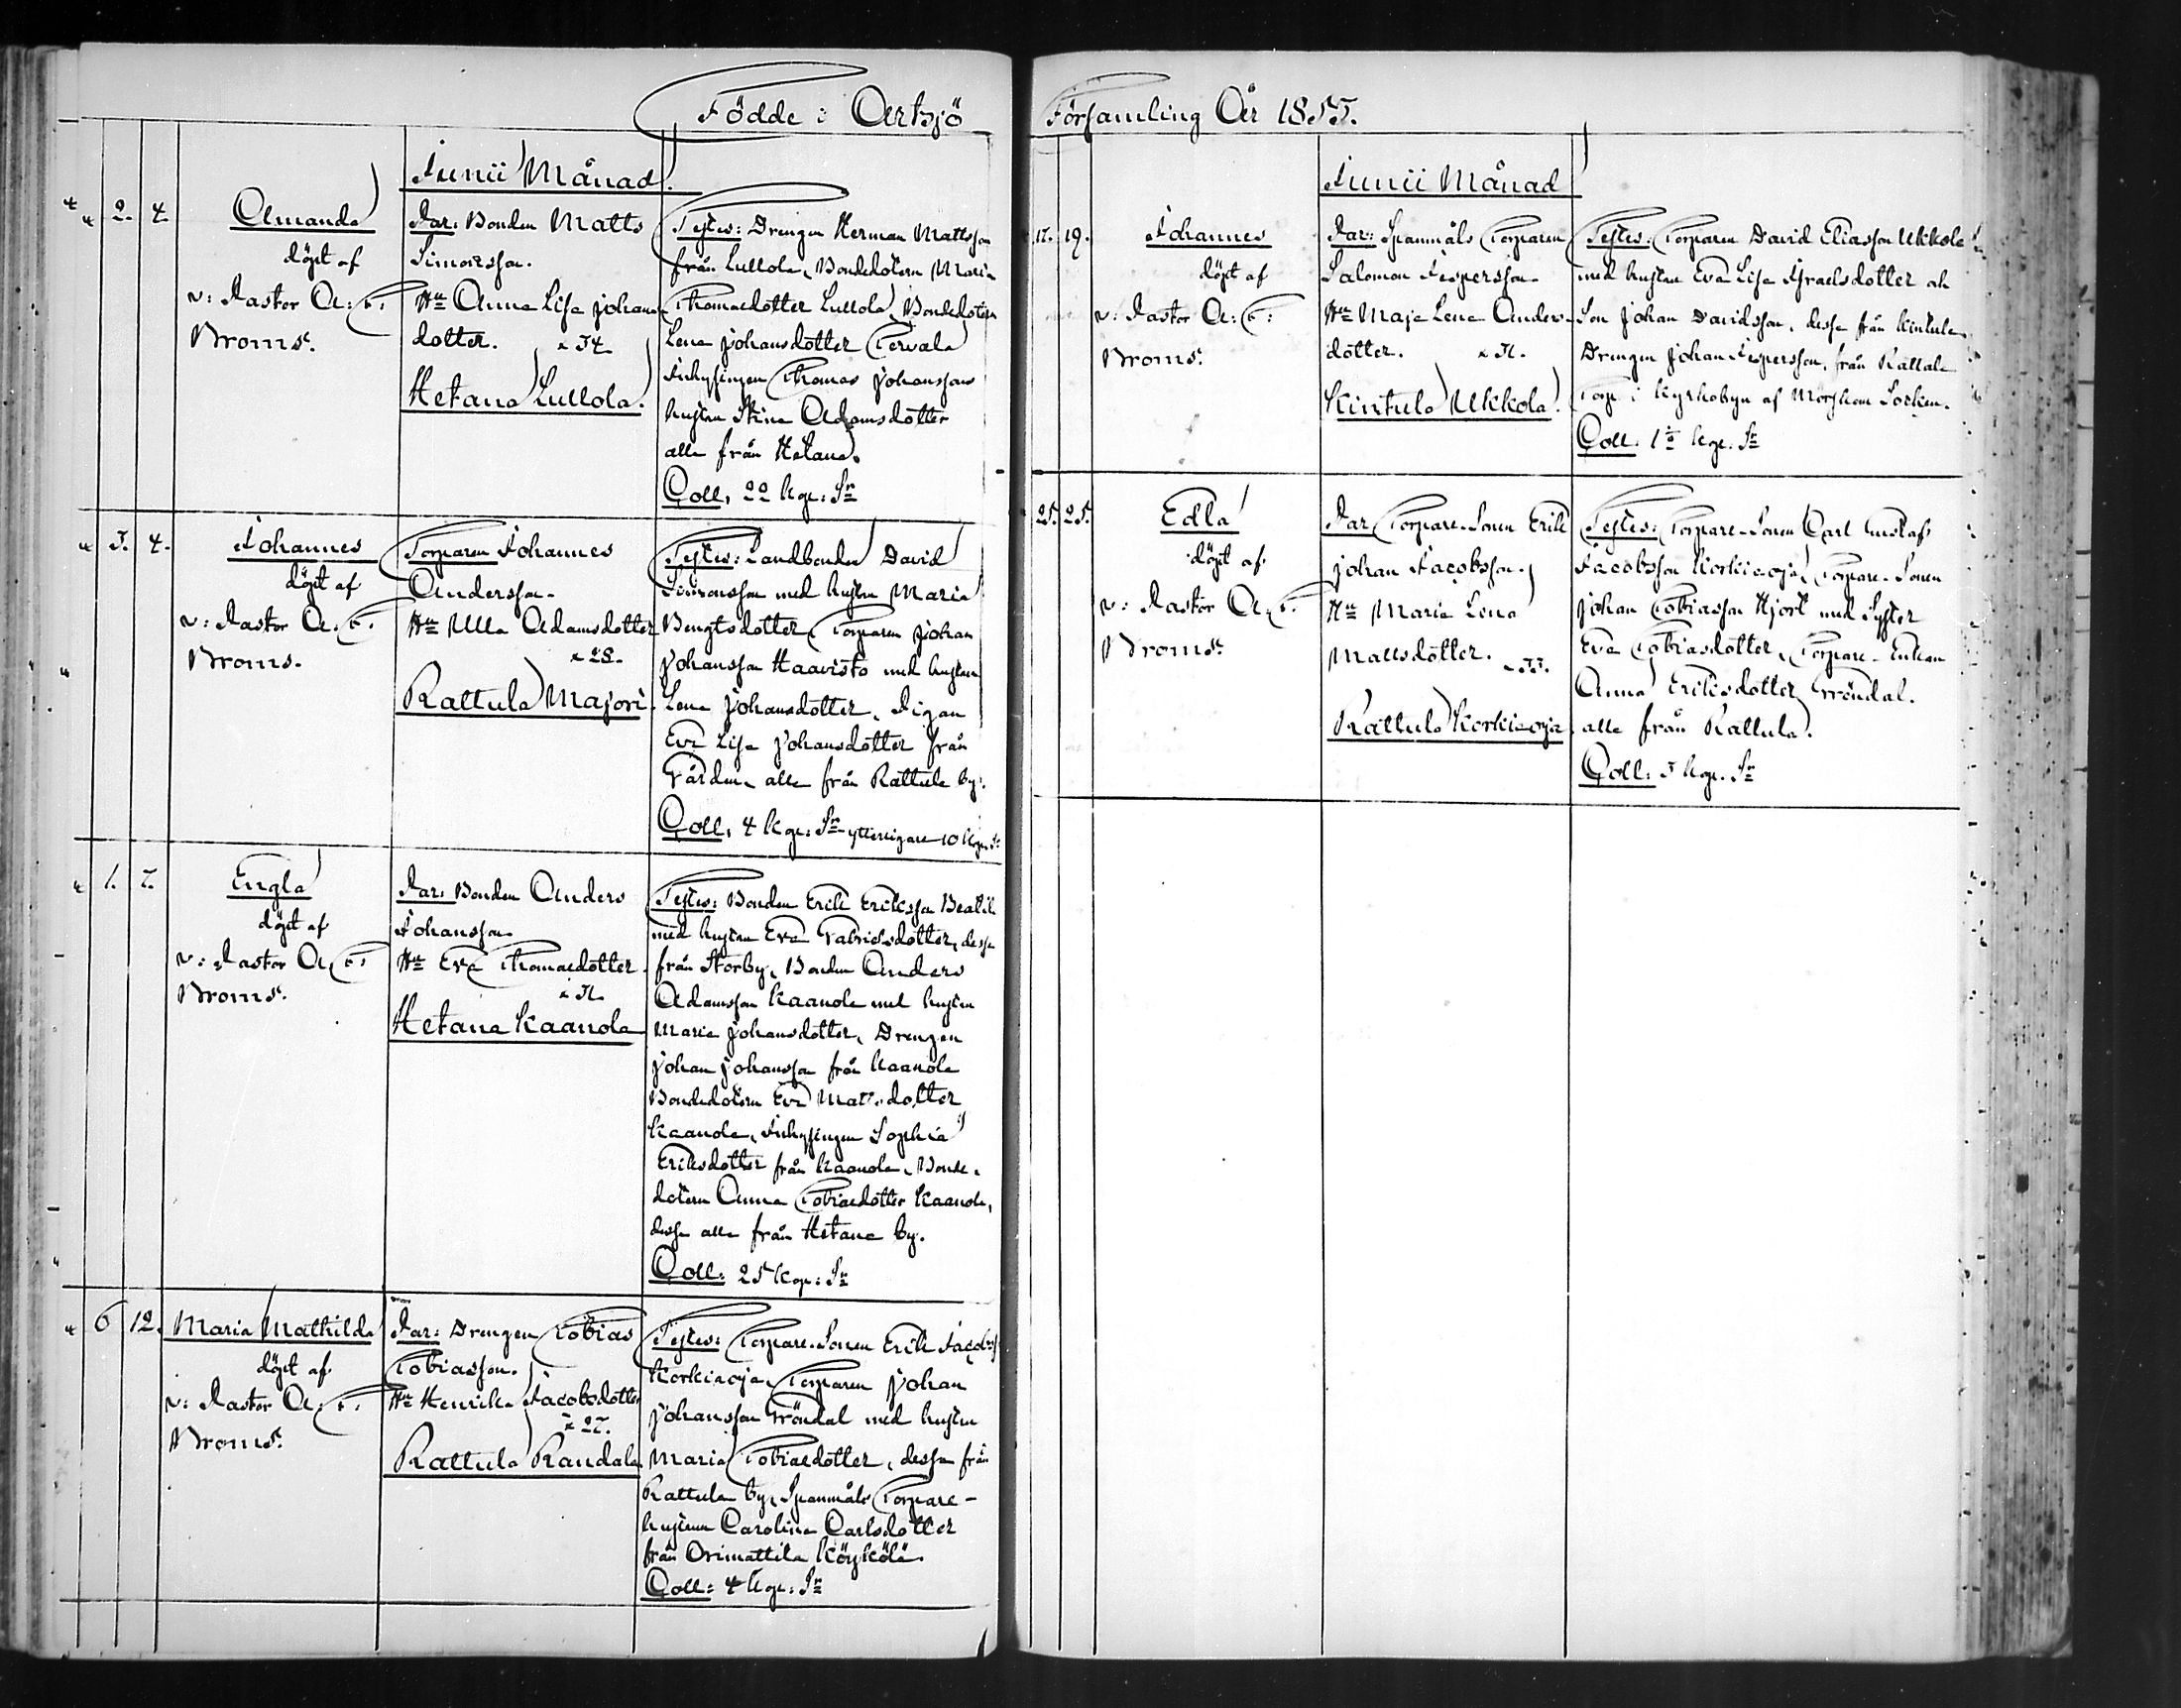 Födde i Artsjö
Junii Månad.
2. 4. Amanda
döpt af
v: Pastor A: F:
Broms.
Far: Bonden Matts
Simonsson.
Hu Anna Lisa Johans
dotter. x 34
Hetana Lullola.
Testes: Drengen Herman Mattsson
från Lullola, Bondedotern Maria
Thomaedotter Lullola, Bondedotern
Lena Johansdotter Tervala
Inhysingen Thomas Johanssons
hustru Stina Adamsdotter
alla från Hetana.
Coll. 22 kop: Sr
3. 4. Johannes
döpt af
v: Pastor A. F.
Broms.
Torparen Johannes
Andersson.
Hu Ulla Adamsdotter
x 28.
Rattula Majori.
Testes: Landbonden David
Simonsson med hustru Maria
Bengtsdotter, Torparen Johan
Johansson Haavisto med hustru
Lena Johansdotter, Pigan
Eva Lisa Johansdotter från
Gården, alla från Rattula by.
Coll. 4 kop: Sr ytterligare 10 kop. Sr
1. 7. Engla
döpt af
v: Pastor A. F:
Broms.
Far: Bonden Anders
Johansson
Hu Eva Thomaedotter
x 31.
Hetana Kaanola
Testes: Bonden Erik Eriksson
med hustru Eva Gabrielsdotter, desse
från Storby, Bonden Anders
Adamsson Kaanola med hustru
Maria Johansdotter, Drengen
Johan Johansson från Kaanola
Bondedotern Eva Mattsdotter
Kaanola, Inhysingen Sophia
Eriksdotter från Kaanola, Bonde-
dotern Anna Tobiaedotter Kaanola,
desse alla från Hetana by.
Coll: 25 kop: Sr
6 12. Maria Mathilda
döpt af
v: Pastor A. F:
Broms.
Far: Drengen Tobias
Tobiasson.
Hu Henrika Jacobsdotter
x 27.
Rattula Randala
Testes: Torpare-Sonen Erik Jacobss
Korkiaoja, Torparen Johan
Johansson Gröndal med hustru
Maria Tobiaedotter, dessa från
Rattula by, Spanmåls Torpare-
hustrun Carolina Carlsdotter
från Orimattila Köykölä.
Coll: 4 kop: Sr
Församling År 1855.
Junii Månad
17. 19. Johannes
döpt af
v: Pastor A: F:
Broms.
Far: Spanmåls Torparen
Salomon Jespersson
Hu Maja Lena Anders-
dotter. x 31.
Kintula Ukkola.
Testes: Torparen David Eliasson Ukkola
med hustru Eva Lisa Israelsdotter och
Son Johan Davidsson, desse från Kintula,
Drengen Johan Jespersson, från Rattala
Torp i Kyrkobyn af Mörskom Socken.
Coll. kop. Sr
25. 25. Edla
döpt af
v: Pastor A. F.
Broms.
Far Torpare-Sonen Erik
Johan Jacobsson.
Hu Maria Lena
Mattsdotter. x 33.
Rattula Korkiaoja.
Testes: Torpare-Sonen Carl Gustaf
Jacobsson Korkiaoja, Torpare-Sonen
Johan Tobiasson Hjort med Syster
Eva Tobiasdotter, Torpare-Enkan
Anna Eriksdotter Gröndal.
alla från Rattula.
Coll: 3 kop. Sr